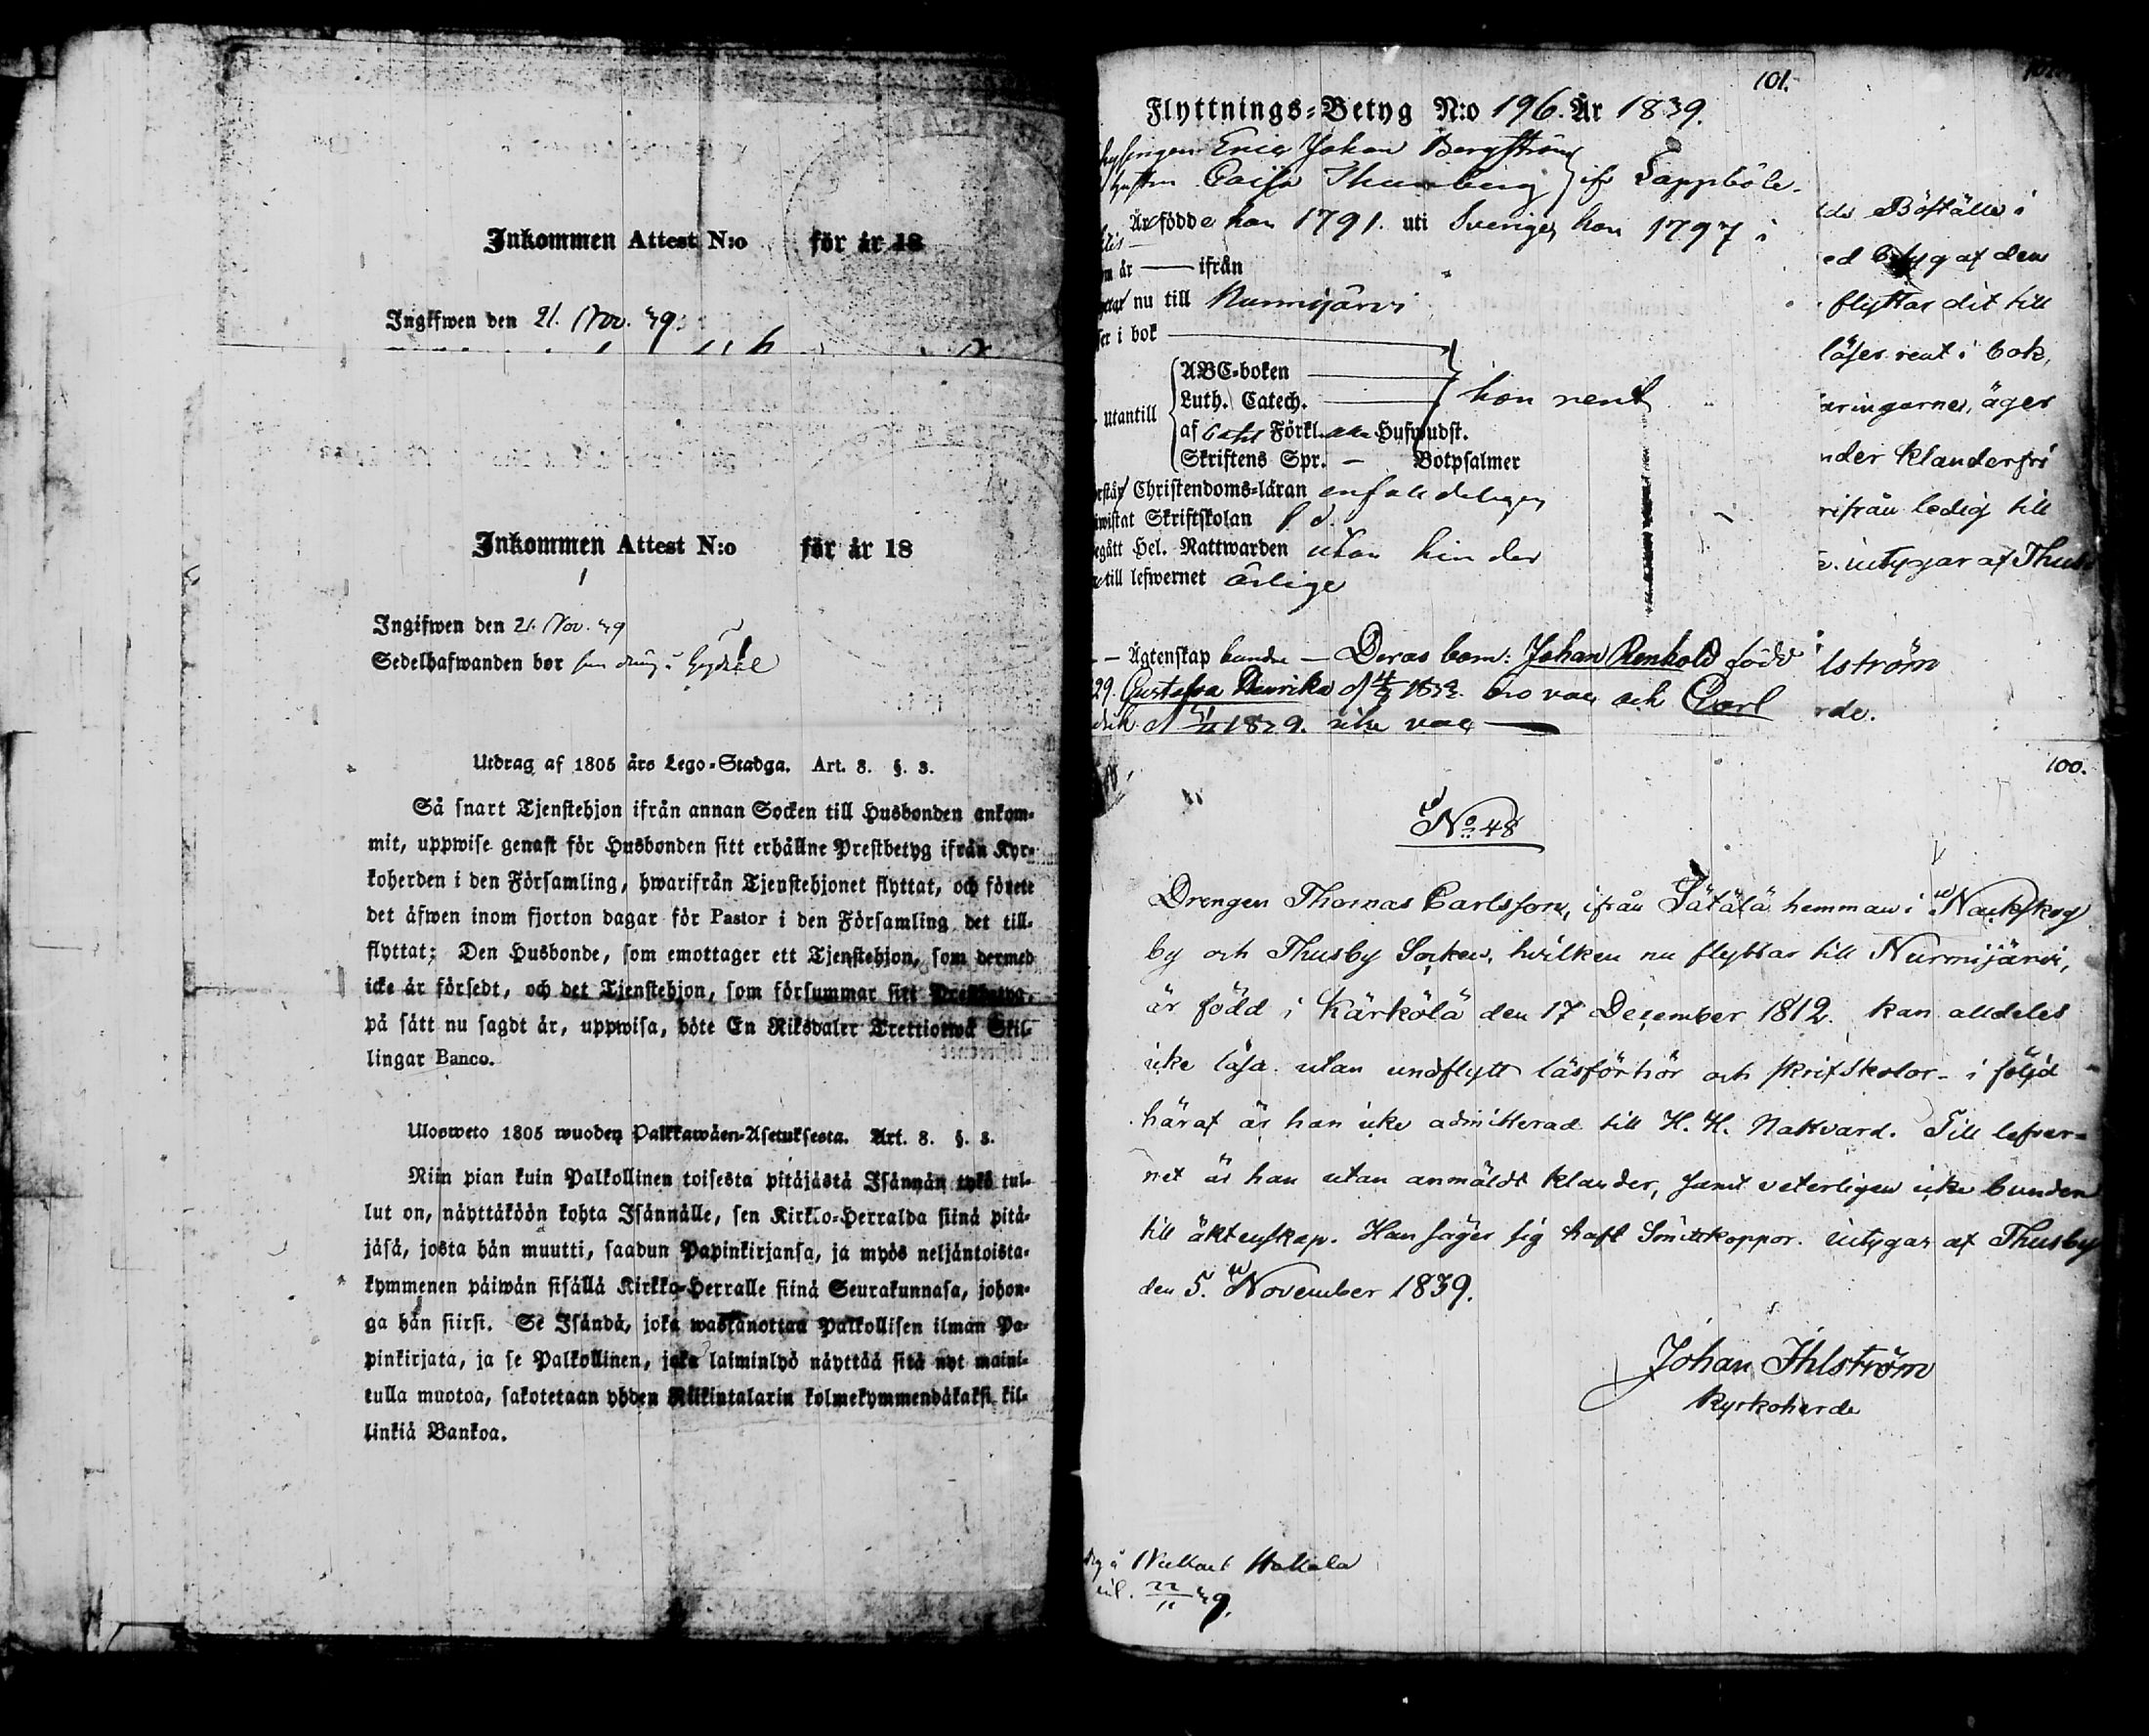 Inkommen Attest N:o för år 18
Ingifwen den 21. Nov. 39.
Inkommen Attest N:o för år 18
Ingifwen den 21. Nov. 39
Sedelhafwanden bor
Utdrag af 1805 års Lego-Stadga. Art. 8. §. 3.
Så snart Tjenstehjon ifrån annan Socken till Husbonden ankom-
mit, uppwise genast för Husbonden sitt erhållne Prestbetyg ifrån Kyr-
koherden i den Församling, hwarifrån Tjenstehjonet flyttat, och förete
det äfwen inom fjorton dagar för Pastor i den Församling det till-
flyttat; Den Husbonde, som emottager ett Tjenstehjon, som dermed
icke är försedt, och det Tjenstehjon, som försummar sitt Prestbetyg,
på sätt nu sagdt är, uppwisa, böte En Riksdaler Trettiotwå Skil-
lingar Banco.
Ulosweto 1805 wuoden Palkkawäen-Asetuksesta. Art. 8. §. 3.
Niin pian kuin Palkollinen toisesta pitäjästä Isännän tykö tul-
lut on, näyttäköön kohta Isännälle, sen Kirkko-Herralda siinä pitä-
jäsä, josta hän muutti, saadun Papinkirjansa, ja myös neljäntoista-
kymmenen päiwän sisällä Kirkko-Herralle siinä Seurakunnasa, johon-
ga hän siirsi. Se Isändä, joka wastanottaa Palkollisen ilman Pa-
pinkirjata, ja se Palkollinen, joka laiminlyö näyttää sitä nyt maini-
tulla muotoa, sakotetaan yhden Riikintalarin kolmekymmendäkaksi kil-
linkiä Bankoa.
101.
Flyttnings-Betyg N:o 196. År 1839.
Eric Johan Bergström
Caisa Thunberg ifr Lappböle.
Äro födde han 1791. uti Sverige, hon 1797 i
år — ifrån
nu till Nurmijärvi
i bok
ABC-boken
Luth. Catech. hon rent
utantill
af Förkl. Hufwudst.
Skriftens Spr. — Botpsalmer
Christendoms-läran enfaldeligen
Skriftskolan
Hel. Nattwarden utan hinder
till lefwernet ärlige
Ägtenskap bundne — Deras barn: Johan Renhold född
29. Gustafva Henrika d 1832. bro vac och Carl
1839. icke vac
Böställe i
betyg af den
flyttar dit till
läser rent i bok,
äger
klanderfri
ledig till
intygar af Thusby
100.
No 48
Drengen Thomas Carlsson, ifrån Sätälä hemman i Nackskog
by och Thusby Socken, hvilken nu flyttar till Nurmijärvi,
är född i Kärkölä den 17 December 1812. kan alldeles
icke läsa utan undflytt läsförhör och skriftskolor - i följd
häraf är han icke admitterad till H. H. Nattvard. Till lefver-
net är han utan anmäldt klander, samt veterligen icke bunden
till äktenskap. Han säger sig haft Smittkoppor. intygar af Thusby
den 5. November 1839.
Johan Ihlström
Kyrkoherde
Hallola
22/11 39.